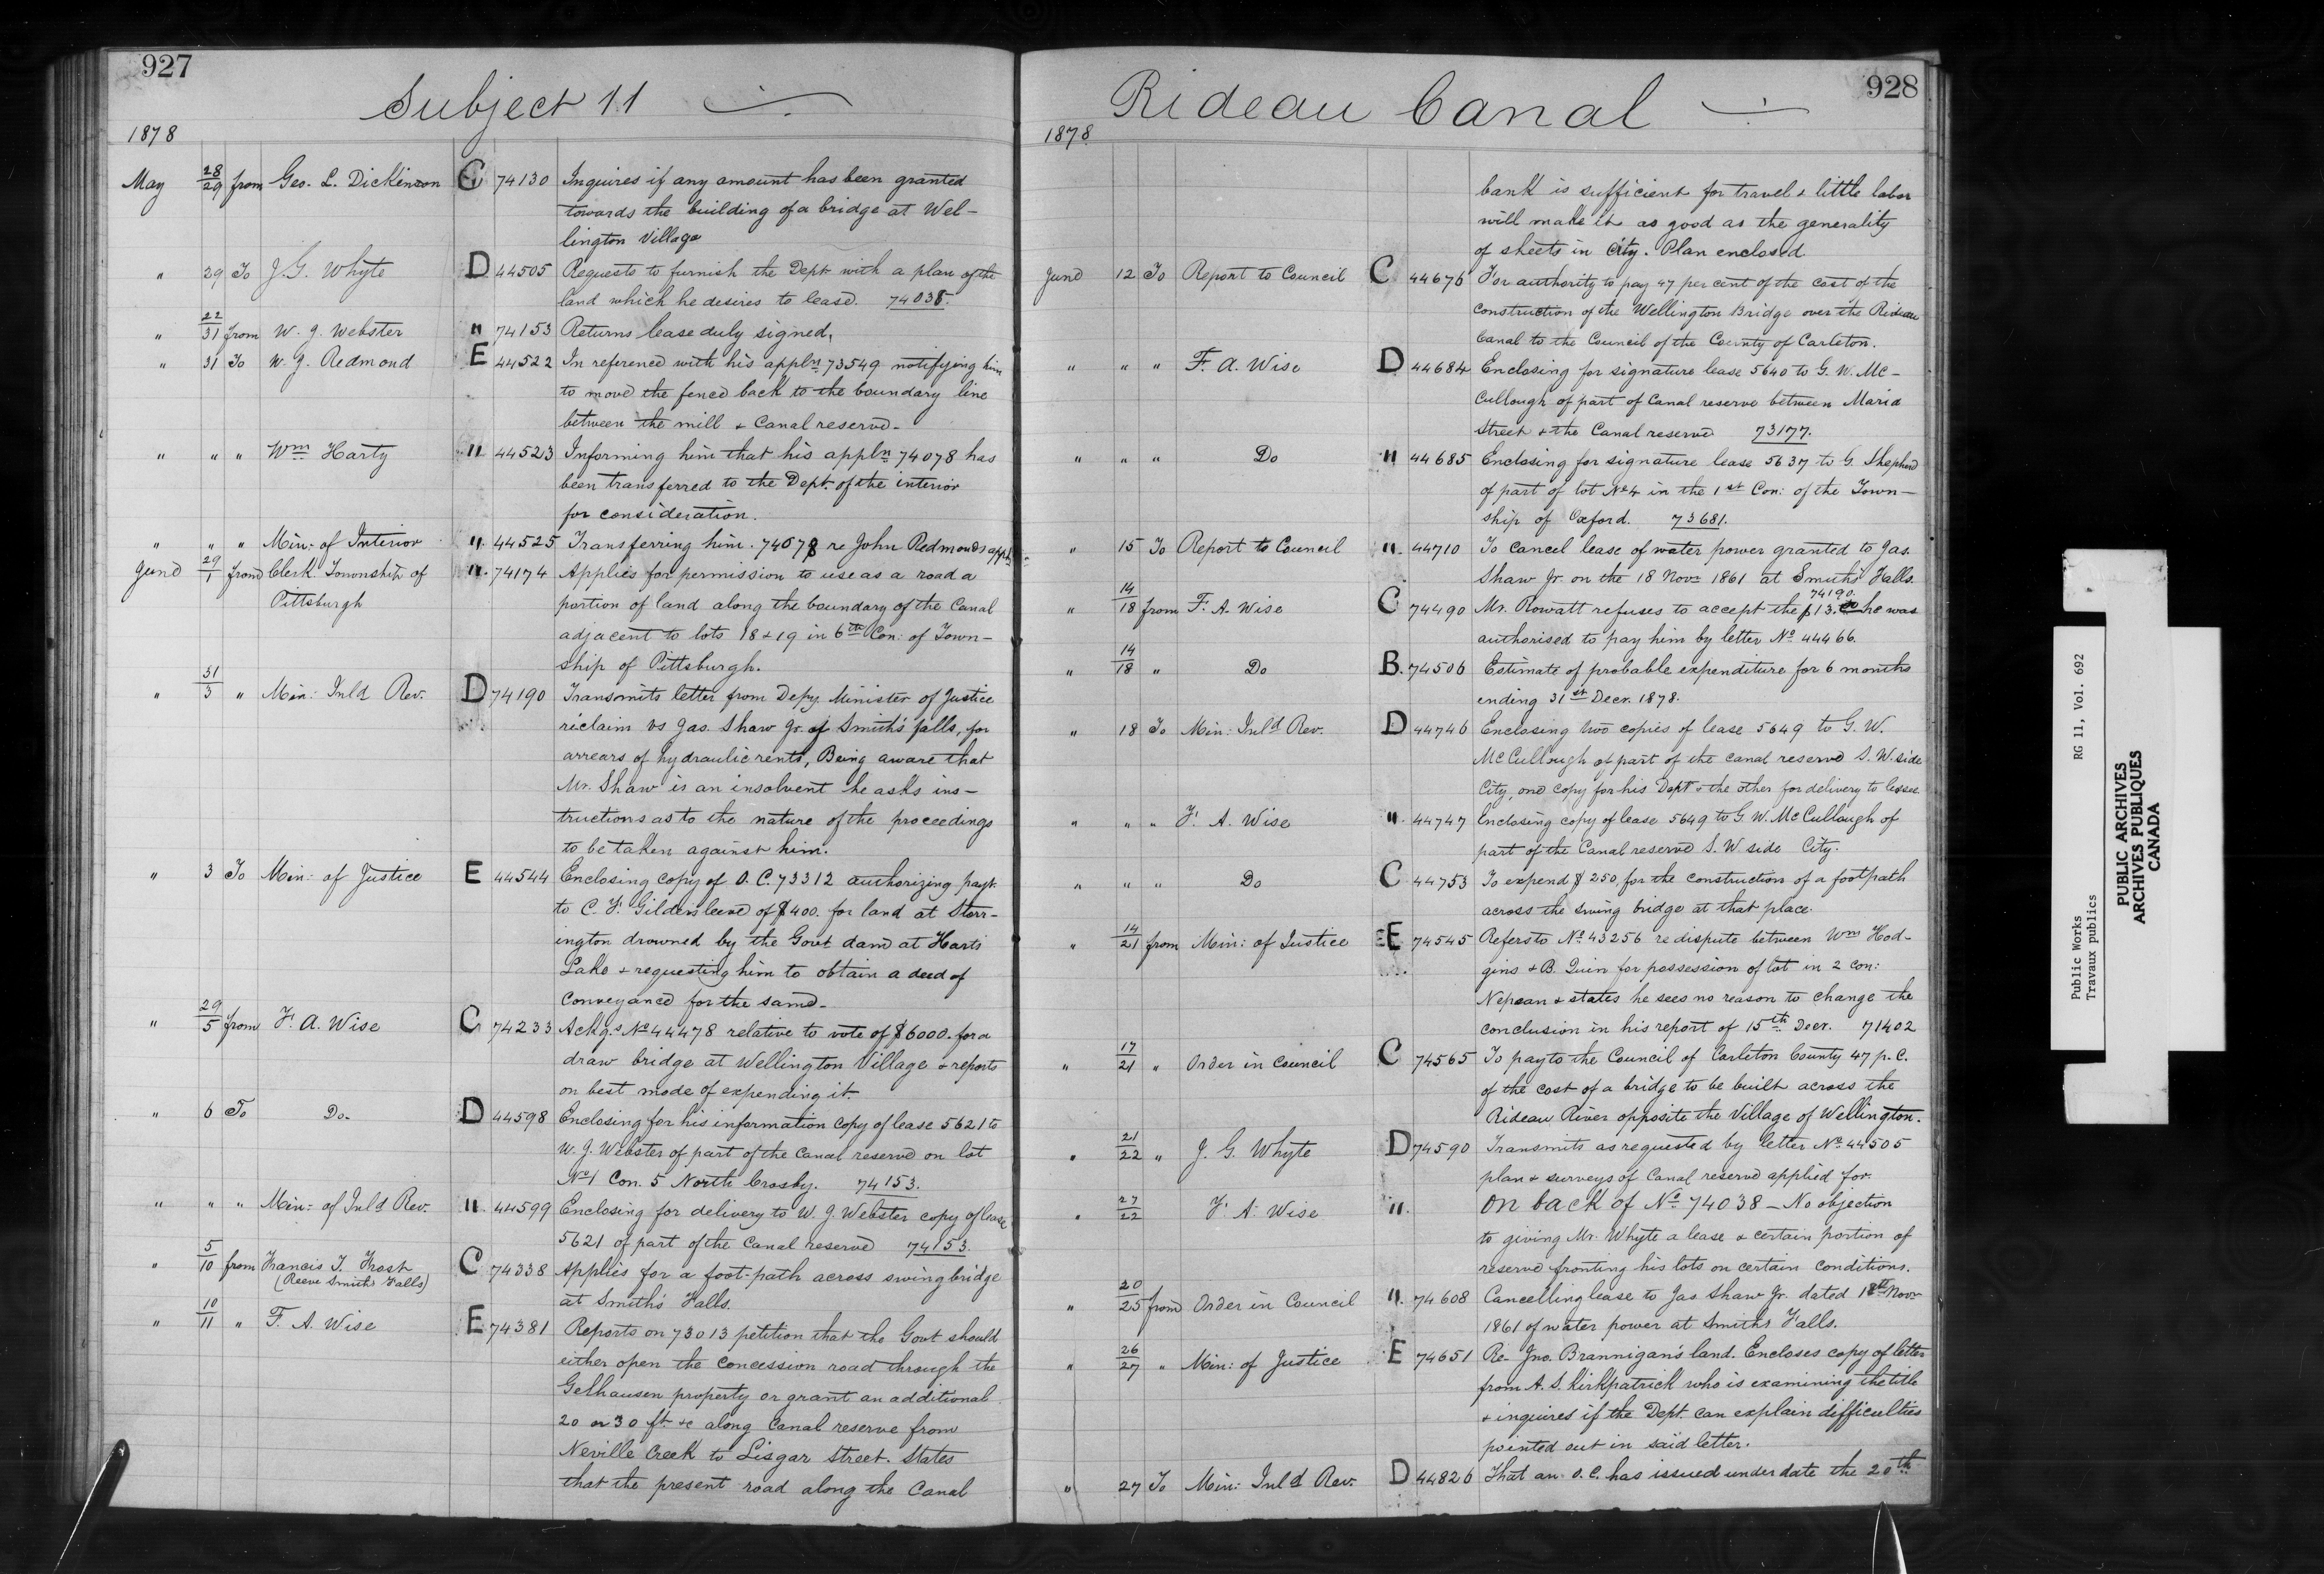 927
Subject 11
1878
May 28/29 from Geo. L. Dickinson C 74130 Inquires if any amount has been granted
towards the building of a bridge at Wel-
lington Village
" 29 To J. G. Whyte D 44505 Requests to furnish the Dept with a plan of the
land which he desires to lease. 74038.
" 22/31 from W. J. Webster " 74153 Returns lease duly signed.
" 31 To W. J. Redmond E 44522 In reference with his appln 73549 notifying him
to move the fence back to the boundary line
between the mill & Canal reserve-
" " " Wm Harty " 44523 Informing him that his appln 74078 has
been transferred to the Dept. of the interior
for consideration.
" " " Min: of Interior " 44525 Transferring him. 74078 re John Redmonds appln
June 29/1 from Clerk Township of " 74174 Applies for permission to use as a road a
Pittsburgh portion of land along the boundary of the Canal
adjacent to lots 18 & 19 in 6th Con: of Town-
ship of Pittsburgh.
" 31/3 " Min: Inld Rev. D 74190 Transmits letter from Depy Minister of Justice
re claim vs Jas. Shaw Jr. of Smith's falls, for
arrears of hydraulic rents, Being aware that
Mr. Shaw is an insolvent he asks ins-
tructions as to the nature of the proceedings
to be taken against him.
" 3 To Min: of Justice E 44544 Enclosing copy of O.C. 73312 authorizing payt.
to C. F. Gildersleeve of $400. for land at Storr-
ington drowned by the Govt dam at Harts
Lake & requesting him to obtain a deed of
Conveyance for the same-
" 29/5 from F. A. Wise C 74233 Ackgs No 44478 relative to vote of $6000. for a
draw bridge at Wellington Village & reports
on best mode of expending it.
" 6 To Do. D 44598 Enclosing for his information copy of lease 5621 to
W. J. Webster of part of the Canal reserve on lot
No 1 Con. 5 North Crosby. 74153.
" " " Min: of Inld Rev. " 44599 Enclosing for delivery to W. J. Webster copy of lease
5621 of part of the Canal reserve 74153.
" 5/10 from Francis T. Frost C 74338 Applies for a foot-path across swing bridge
(Reeve Smiths Falls) at Smith's Falls.
" 10/11 " F. A. Wise E 74381 Reports on 73013 petition that the Govt should
either open the concession road through the
Gelhausen property or grant an additional
20 or 30 ft. &c along Canal reserve from
Neville Creek to Lisgar Street. States
that the present road along the Canal
928
Rideau Canal
1878.
bank is sufficient for travel & little labor
will make it as good as the generality
of sheets in City. Plan enclosed
June 12 To Report to Council C 44676 For authority to pay 47 per cent of the cost of the
construction of the Wellington Bridge over the Rideau
Canal to the Council of the County of Carleton.
" " " F. A. Wise D 44684 Enclosing for signature lease 5640 to G. W. Mc-
Cullough of part of Canal reserve between Maria
Street & the Canal reserve 73177.
" " " Do " 44685 Enclosing for signature lease 5637 to G. Shepherd
of part of lot No 4 in the 1st Con: of the Town-
ship of Oxford. 73681.
" 15 To Report to Council " 44710 To cancel lease of water power granted to Jas.
Shaw Jr. on the 18 Novr 1861 at Smiths' Falls.
74190.
" 14/18 from F. A. Wise C 74490 Mr. Rowatt refuses to accept the $13.00 he was
authorised to pay him by letter No 44466.
" 14/18 " Do B. 74506 Estimate of probable expenditure for 6 months
ending 31st Decr. 1878.
" 18 To Min: Inld Rev. D 44746 Enclosing two copies of lease 5649 to G. W.
McCullough of part of the canal reserve S. W. side
City, one copy for his Dept & the other for delivery to lessee.
" " " F. A. Wise " 44747 Enclosing copy of lease 5649 to G W. McCullough of
part of the Canal reserve S. W side City.
" " " Do C 44753 To expend $250. for the construction of a footpath
across the swing bridge at that place.
" 14/21 from Min: of Justice E 74545 Refers to No 43256 re dispute between Wm Hod-
gins & B. Quin for possession of lot in 2 Con:
Nepean & states he sees no reason to change the
conclusion in his report of 15th Decr. 71402
" 17/21 " Order in Council C 74565 To pay to the Council of Carleton County 47 p. C.
of the cost of a bridge to be built across the
Rideau River opposite the Village of Wellington.
" 21/22 " J. G. Whyte D 74590 Transmits as requested by letter No 44505
plan & surveys of Canal reserve applied for.
" 27/22 F. A. Wise " on back of No 74038 - No objection
to giving Mr. Whyte a lease & certain portion of
reserve fronting his lots on certain conditions.
" 20/25 from Order in Council " 74608 Cancelling lease to Jas Shaw Jr. dated 18th Novr
1861 of water power at Smiths Falls.
" 26/27 " Min: of Justice E 74651 Re- Jno. Brannigan's land. Encloses copy of letter
from A. S. Kirkpatrick who is examining the title
& inquires if the Dept. can explain difficulties
pointed out in said letter.
" 27 To Min: Inld Rev. D 44826 That an O.C. has issued under date the 20th
Public Works RG 11, Vol. 692
Travaux publics
PUBLIC ARCHIVES
ARCHIVES PUBLIQUES
CANADA